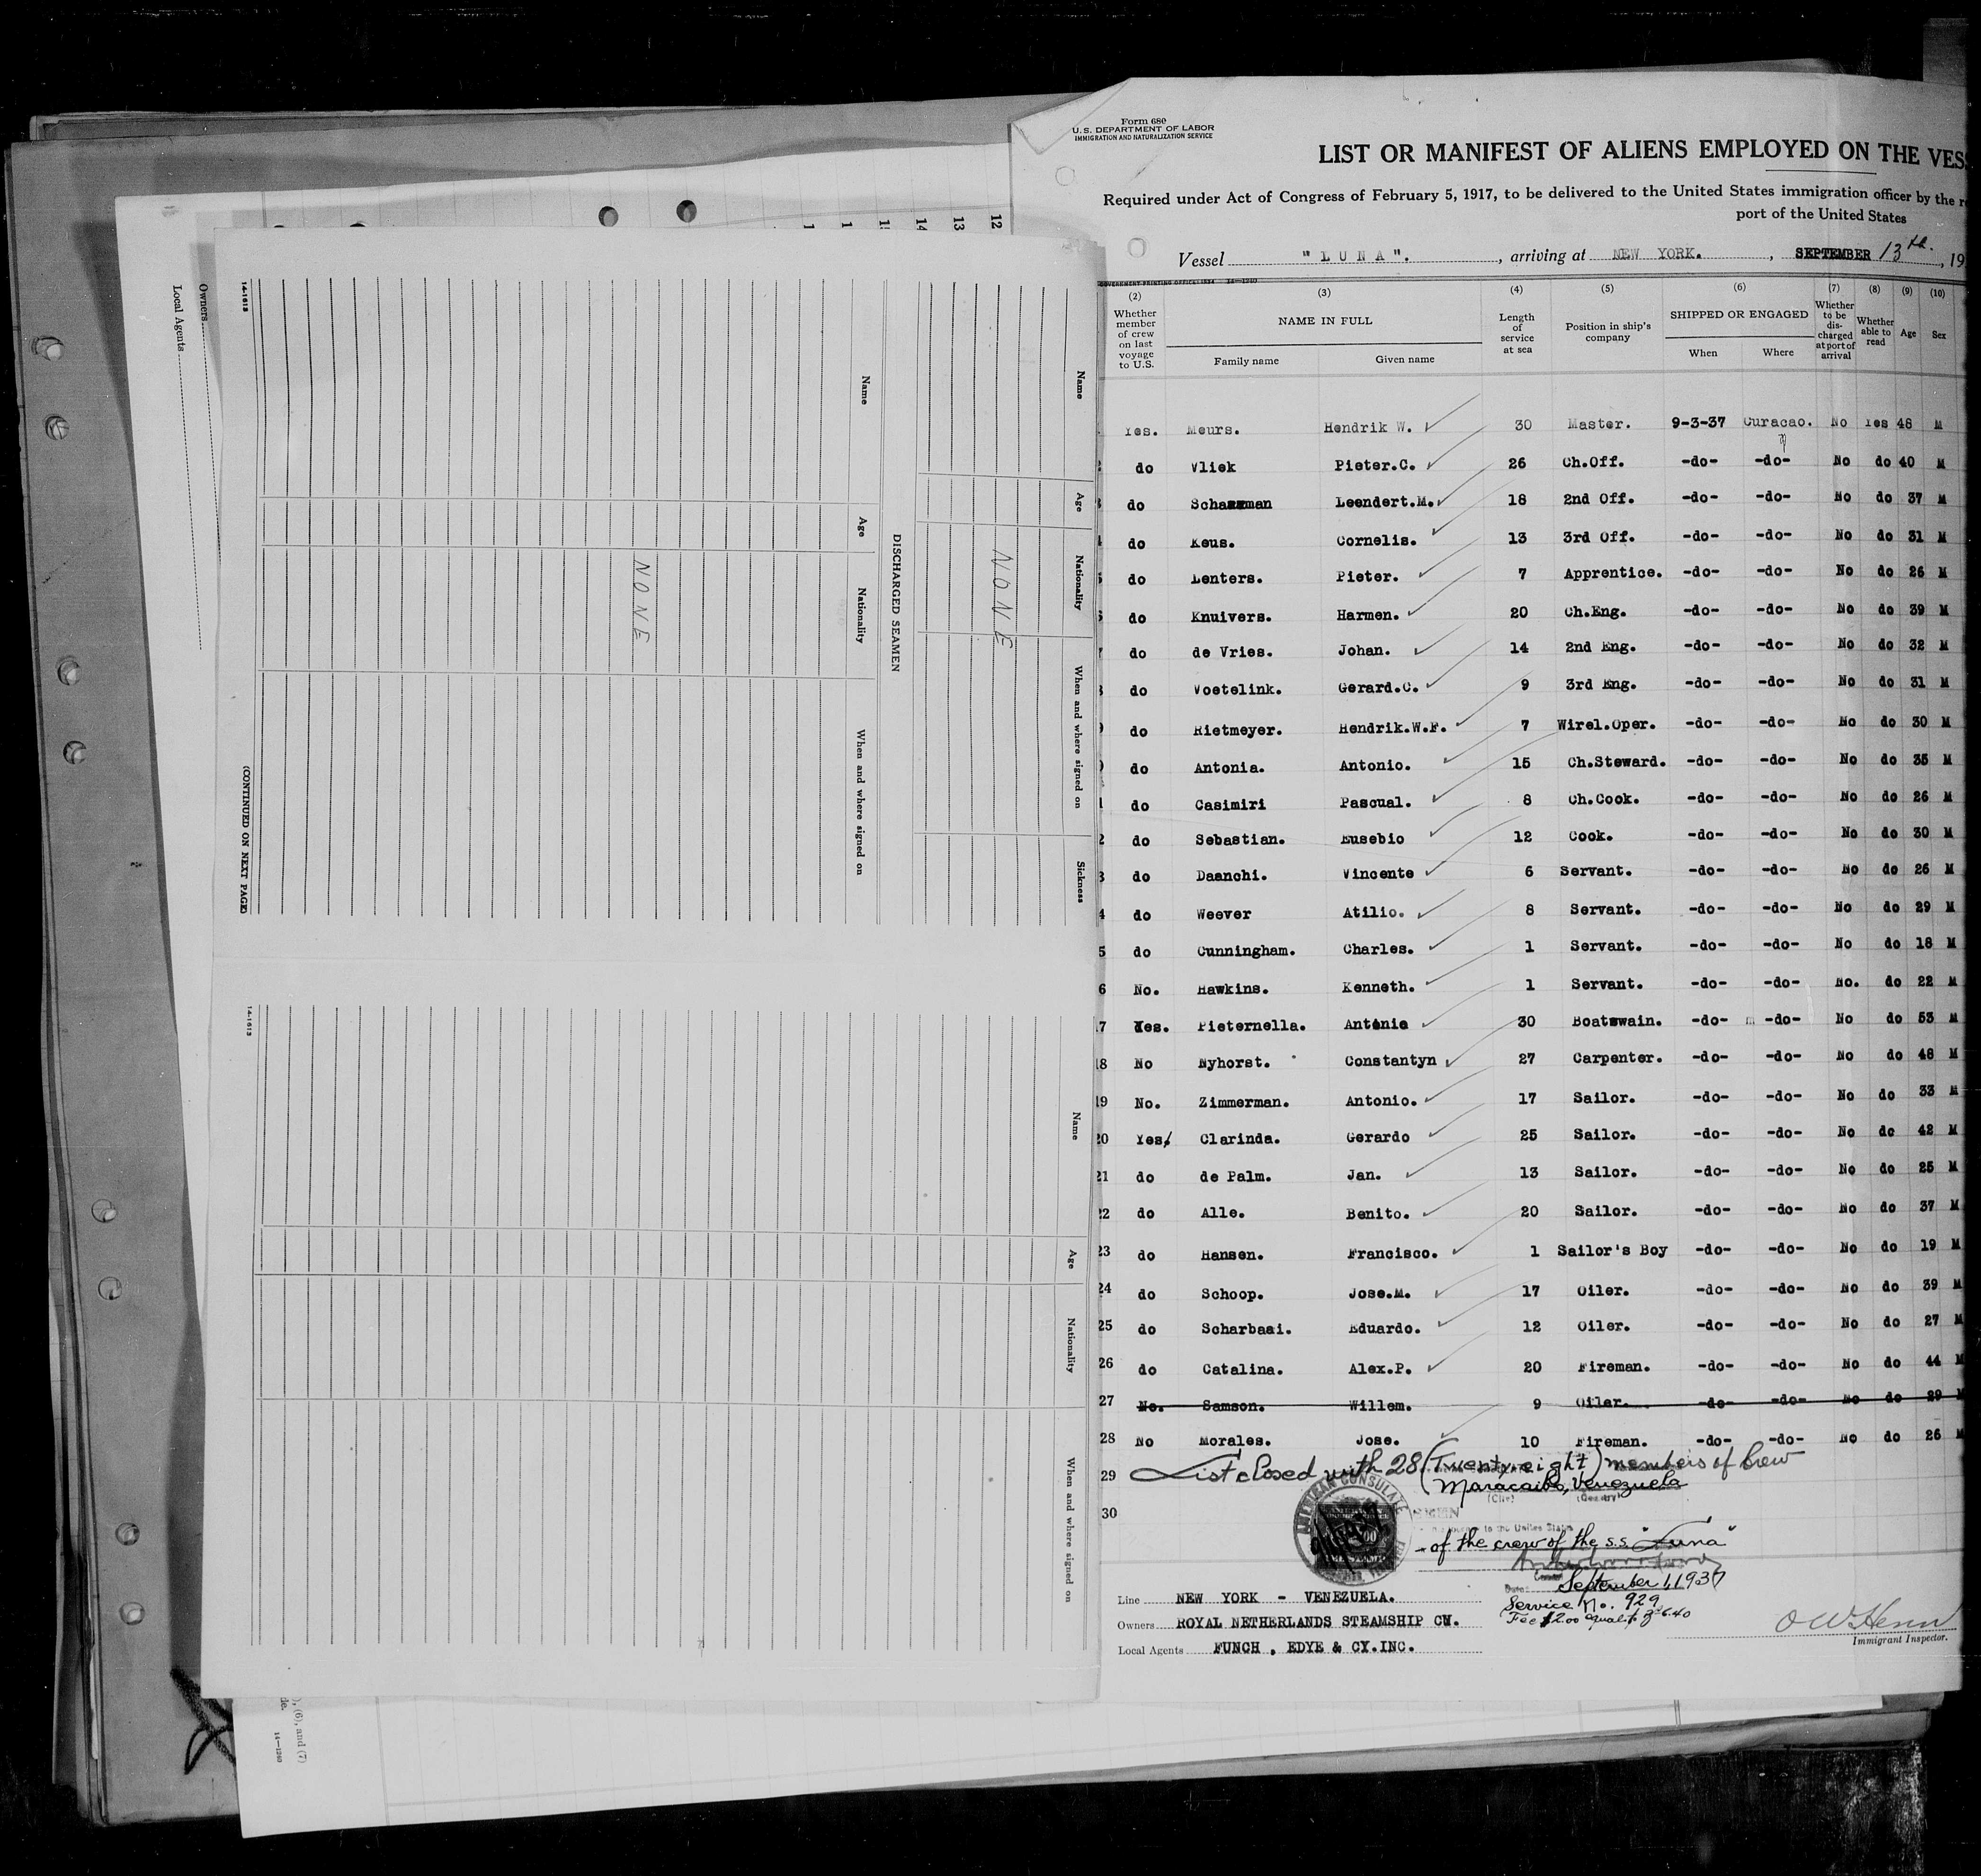 Form 680
U.S. DEPARTMENT OF LABOR
IMMIGRATION AND NATURALIZATION SERVICE
LIST OR MANIFEST OF ALIENS EMPLOYED ON THE
Required under Act of Congress of February 5, 1917, to be delivered to the United States immigration officer by the
port of the United States
Vessel "LUNA". , arriving at NEW YORK. , SEPTEMBER 13th. , 19
(2) (3) (4) (5) (6) (7) (8) (9) (10)
Whether member of crew on last voyage to U.S. NAME IN FULL Length of service at sea Position in ship's company SHIPPED OR ENGAGED Whether to be discharged at port of arrival Whether able to read Age Sex
Family name Given name When Where
Yes. Meurs. Hendrik W. 30 Master. 9-3-37 Curacao. No Yes 48 M
do Vliek Pieter.C. 26 Ch.Off. -do- -do- No do 40 M
do Leendert.M. 18 2nd Off. -do- -do- No do 37 M
do Keus. Cornelis. 13 3rd Off. -do- -do- No do 31 M
do Lenters. Pieter. 7 Apprentice. -do- -do- No do 26 M
do Knuivers. Harmen. 20 Ch.Eng. -do- -do- No do 39 M
do de Vries. Johan. 14 2nd Eng. -do- -do- No do 32 M
do Voetelink. Gerard.C. 9 3rd Eng. -do- -do- No do 31 M
do Rietmeyer. Hendrik.W.F. 7 Wirel.Oper. -do- -do- No do 30 M
do Antonia. Antonio. 15 Ch.Steward. -do- -do- No do 35 M
do Casimiri Pascual. 8 Ch.Cook. -do- -do- No do 26 M
do Sebastian. Eusebio 12 Cook. -do- -do- No do 30 M
do Daanchi. Vincente 6 Servant. -do- -do- No do 26 M
do Weever Atilio. 8 Servant. -do- -do- No do 29 M
do Cunningham. Charles. 1 Servant. -do- -do- No do 18 M
No. Hawkins. Kenneth. 1 Servant. -do- -do- No. do 22 M
17 Yes. Pieternella. Antonia 30 Boatswain. -do- -do- No do 53 M
18 No Nyhorst. Constantyn 27 Carpenter. -do- -do- No do 48 M
19 No. Zimmerman. Antonio. 17 Sailor. -do- -do- No do 33 M
20 Yes. Clarinda. Gerardo 25 Sailor. -do- -do- No do 42 M
21 do de Palm. Jan. 13 Sailor. -do- -do- No do 25 M
22 do Alle. Benito. 20 Sailor. -do- -do- No do 37 M
23 do Hansen. Francisco. 1 Sailor's Boy -do- -do- No do 19 M
24 do Schoop. Jose.M. 17 Oiler. -do- -do- No do 39 M
25 do Scharbaai. Eduardo. 12 Oiler. -do- -do- No do 27 M
26 do Catalina. Alex.P. 20 Fireman. -do- -do- No do 44 M
27 No. Samson. Willem. 9 Oiler. -do- -do- No do 29 M
28 No Morales. Jose. 10 Fireman. -do- -do- No do 26 M
29 List closed with 28 (Twenty eight) members of Crew
Maracaibo, Venezuela
(City) (Country)
30
AMERICAN CONSULATE
to the United States
of the crew of the s.s. "Luna"
Date: September 1, 1937
Service No. 929
Fee $2.00 equal to
Line NEW YORK - VENEZUELA.
Owners ROYAL NETHERLANDS STEAMSHIP CY.
Local Agents FUNCH , EDYE & CY.INC.
Immigrant Inspector.
Name Age Nationality When and where signed on Sickness
NONE
DISCHARGED SEAMEN
Name Age Nationality When and where signed on
NONE
14-1613
(CONTINUED ON NEXT PAGE)
Name Age Nationality When and where signed on
14-1613
Owners
Local Agents
12
13
14
(6), and (7)
14-1240